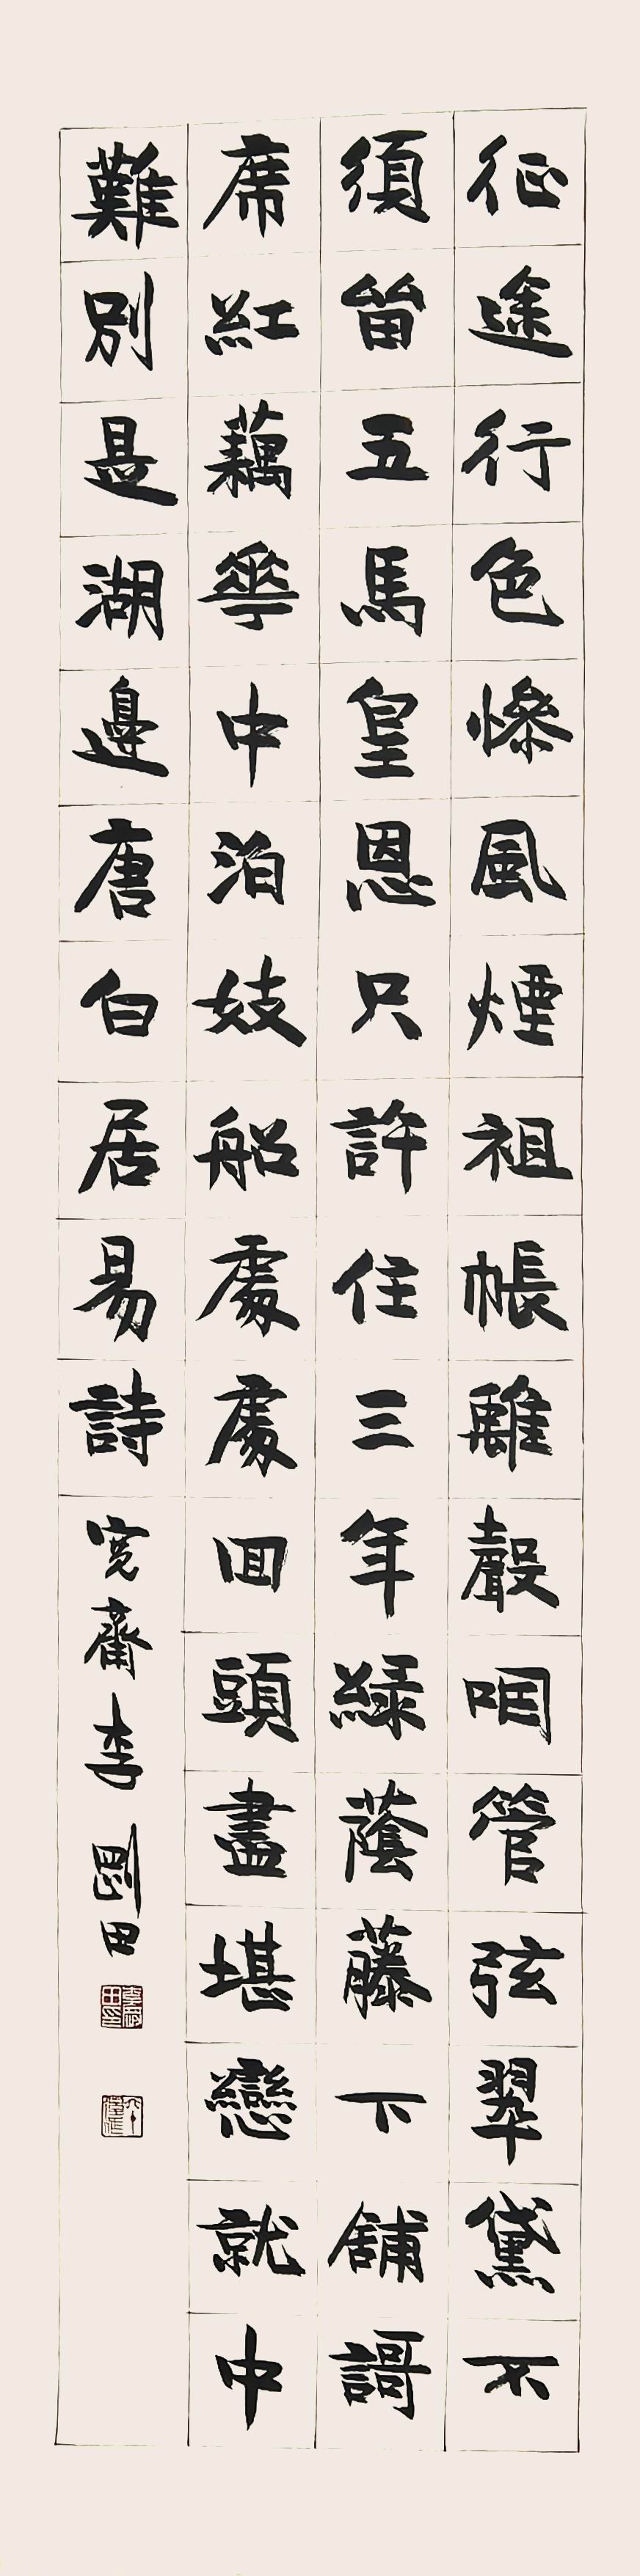 征途行色慘風煙祖帳離聲咽管弦翠黛不
須留五馬皇恩只許住三年緑蔭藤下舖謌
席紅藕華中泊妓船處處回頭盡堪戀就中
難別是湖邊唐白居易詩寬齋李剛田
李剛田印